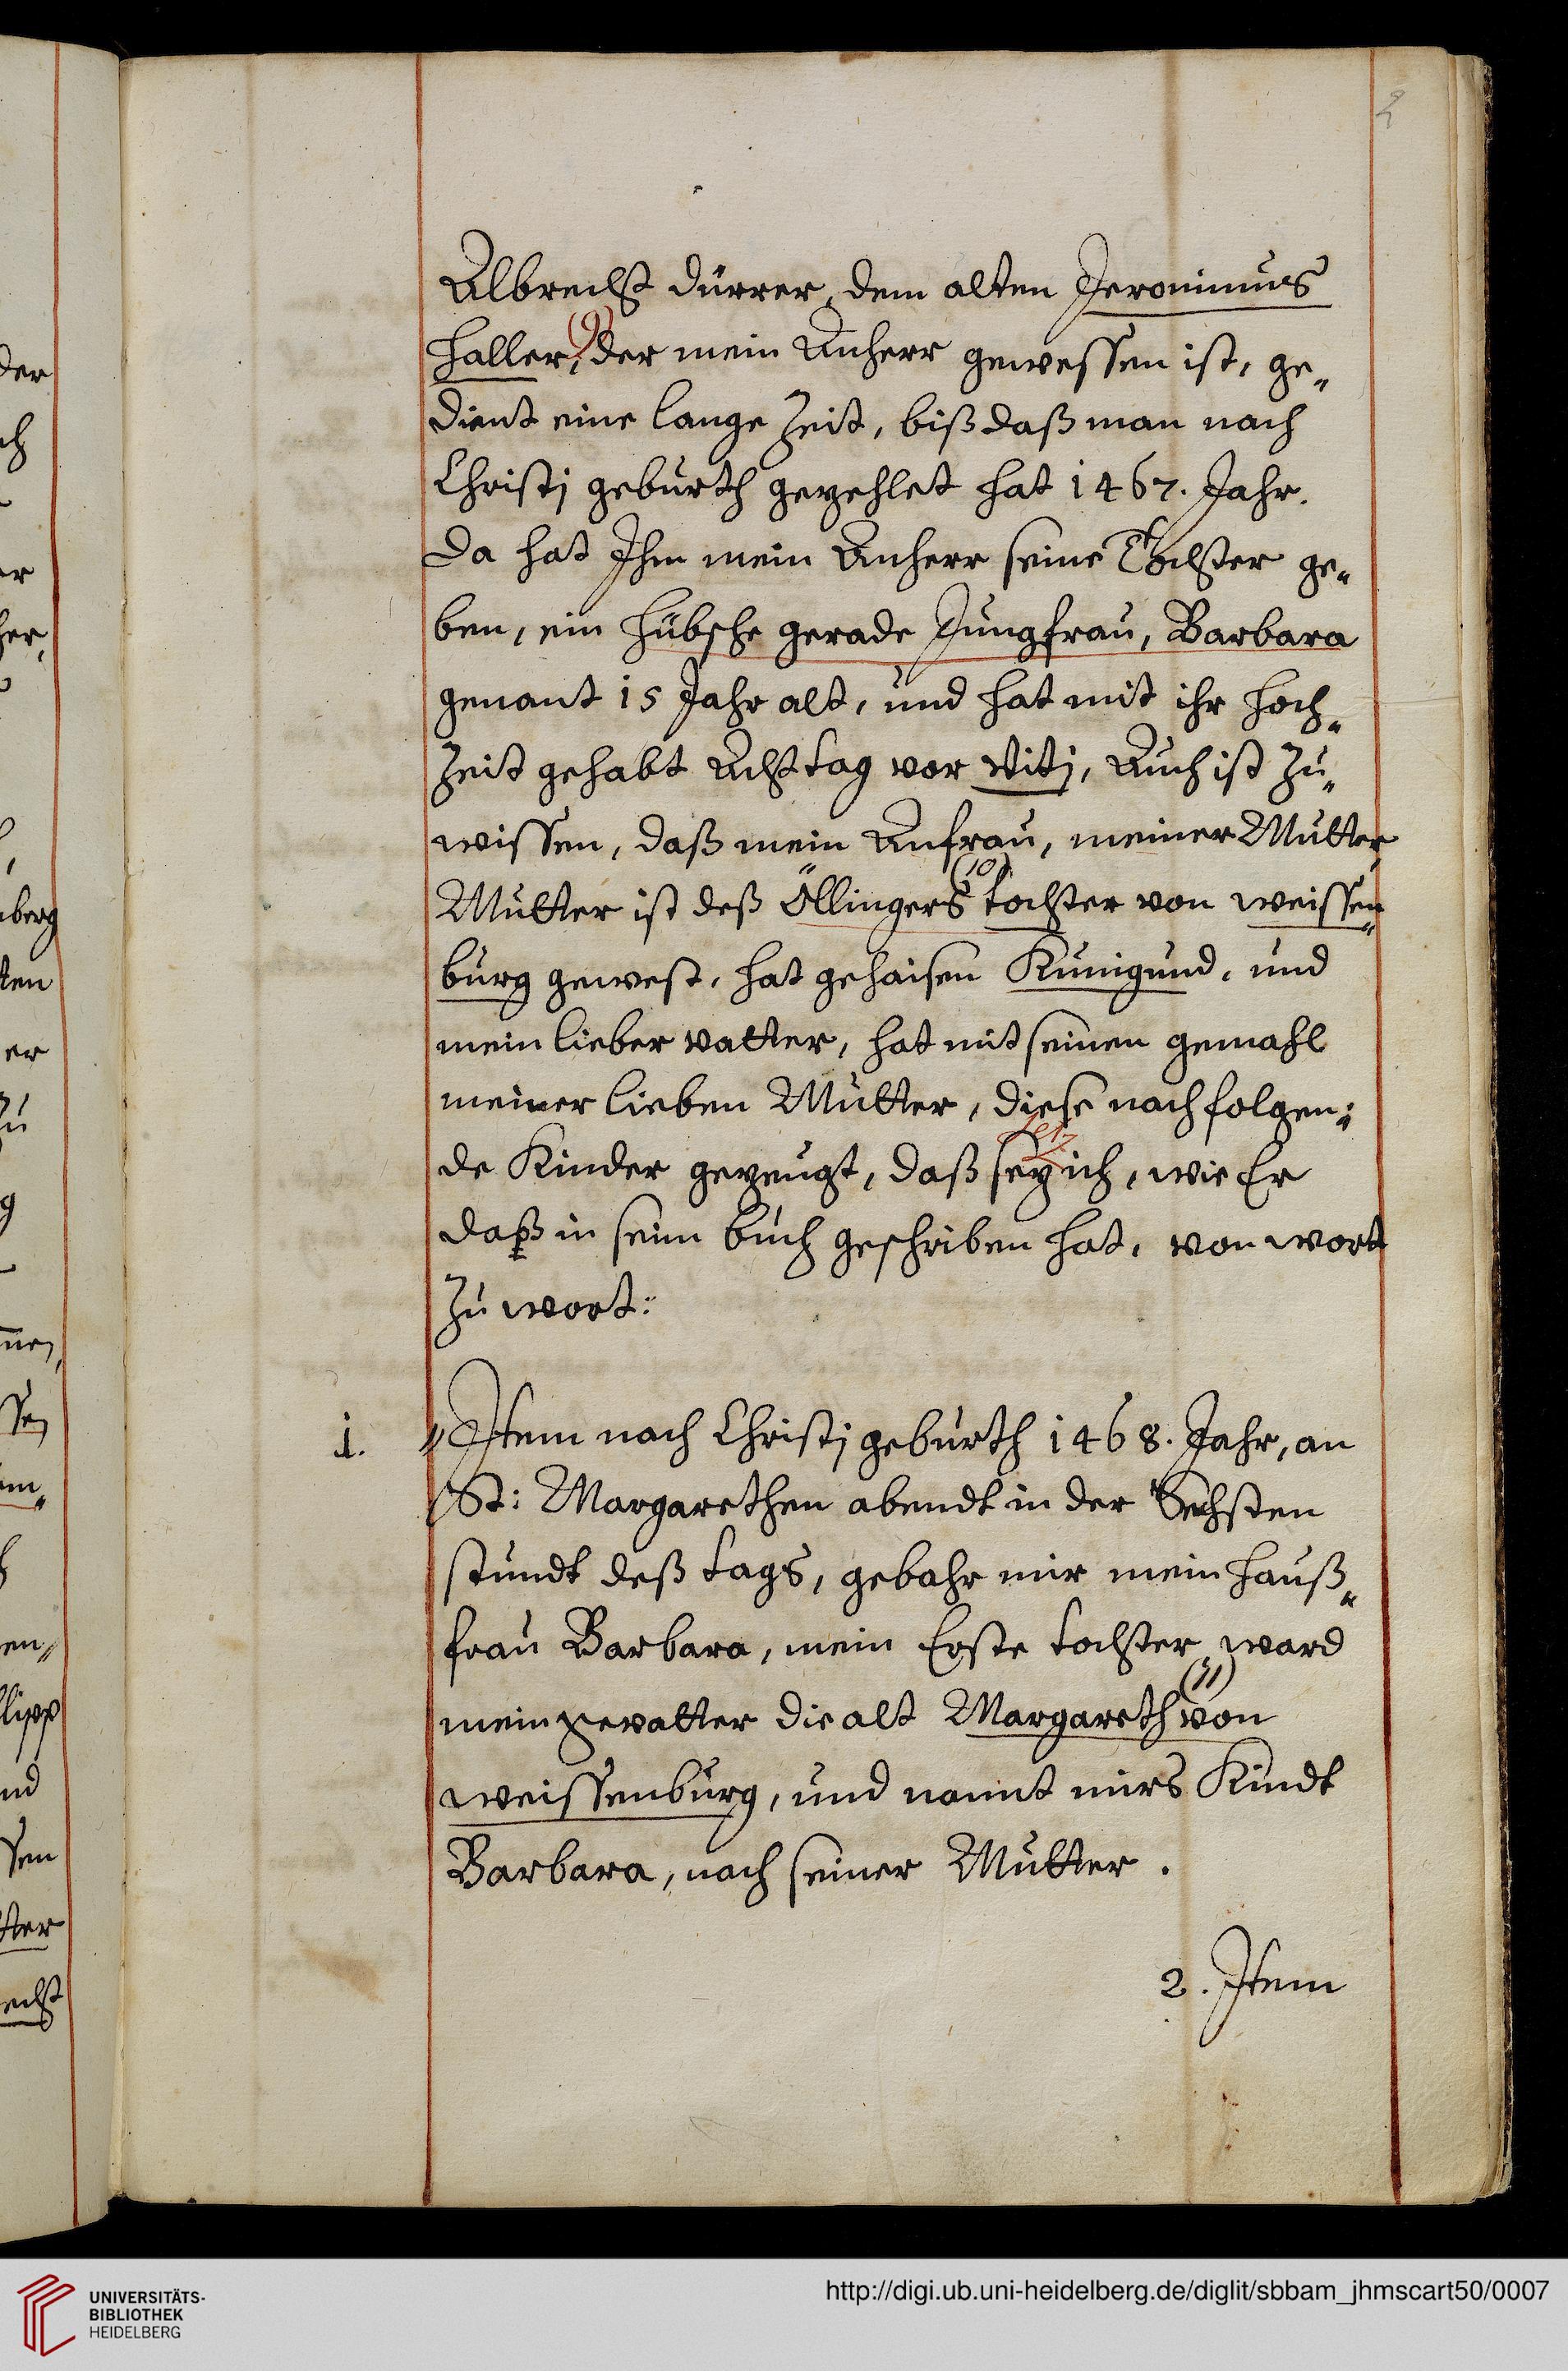 2
Albrecht dürrer, dem alten Jeronimus
Haller, (9) der mein Anherr gewessen ist, ge„
dient eine lange Zeit, biß daß man nach
Christj geburth gezehlet hat 1467. Jahr.
Da hat Ihm mein Anherr seine Tochter ge„
ben, ein hübsche gerade Jungfrau, Barbara
genant 15 Jahr alt, und hat mit ihr hoch„
Zeit gehabt Acht tag vor Vitj, Auch ist Zu„
wissen, daß mein Anfrau, meiner Mutter
Mutter ist deß Öllingers (10) tochter von weissen„
burg gewest, hat gehaisen Kunigund, und
mein lieber vatter, hat mit seinen gemahl
meiner lieben Mutter, diese nachfolgen„
setz
de Kinder gezeugt, daß sey ich, wie Er
daß in seim buch geschriben hat, von wort
Zu wort:
1. „Item nach Christj geburth 1468. Jahr, an
St: Margarethen abendt in der Sechsten
stundt deß tags, gebahr mir mein Hauß„
frau Barbara, mein Erste tochter, ward
mein gevatter die alt Margareth (11) von
weissenburg, und nannt mirs Kindt
Barbara, nach seiner Mutter.
2. Item
der
ch
er
her,
berg
ten
er
zu
g
nen,
ssen
em„
en„
lipp
nd
ssen
tter
recht
UNIVERSITÄTS-
BIBLIOTHEK
HEIDELBERG
http://digi.ub.uni-heidelberg.de/diglit/sbbam_jhmscart50/0007